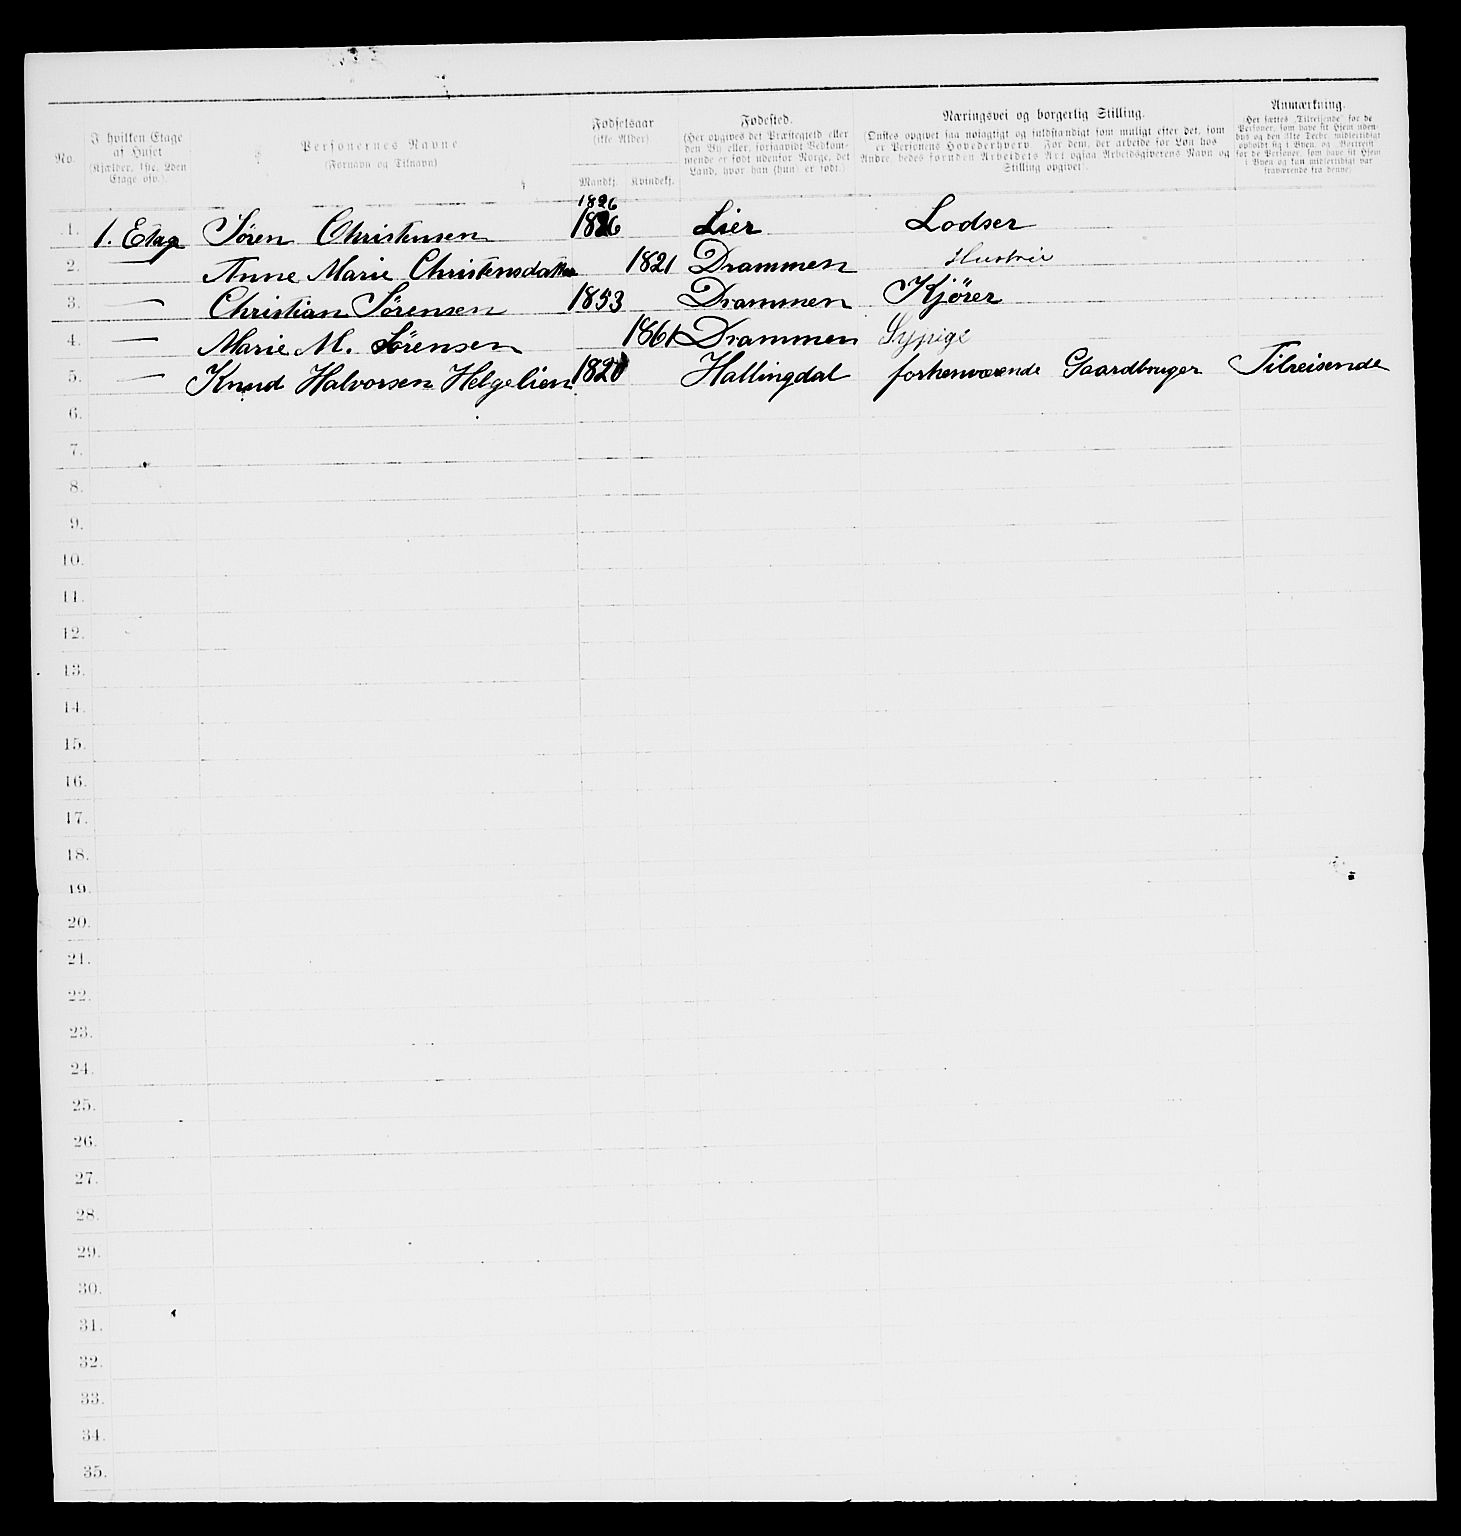 No.
I hvilken Etage af Huset (Kjælder, 1ste, 2den Etage osv.).
Personernes Navne (Fornavn og Tilnavn)
Fødselsaar (ikke Alder) Mandkj. Kvindekj.
Fødested. (Her opgives det Præstegjeld eller den By eller, forsaavidt Vedkommende er født udenfor Norge, det Land, hvor han (hun) er født.)
Næringsvei og borgerlig Stilling. (Ønskes opgivet saa nøiagtigt og fuldstændigt som muligt efter det, som er Personens Hovederhverv. For dem, der arbeide for Løn hos Andre, bedes foruden Arbeidets Art ogsaa Arbeidsgiverens Navn og Stilling opgivet.
Anmærkning. (Her sættes "Tilreisende" for de Personer, som have sit Hjem udenbys og den 31te Decbr. midlertidigt opholdt sig i Byen, og "Bortreist" for de Personer, som have sit Hjem i Byen og kun midlertidigt var fraværende fra denne)
1826
1. 1. Etage Søren Christensen 1826 Lier Lodser
2. — Anne Marie Christensdatter 1821 Drammen Hustrue
3. — Christian Sørensen 1853 Drammen Kjører
4. — Marie M. Sørensen 1861 Drammen Sypige
5. — Knud Halvorsen Helgelien 1820 Hallingdal forhenværende Gaardbruger Tilreisende
6.
7.
8.
9.
10.
11.
12.
13.
14.
15.
16.
17.
18.
19.
20.
21.
22.
23.
24.
25.
26.
27.
28.
29.
30.
31.
32.
33.
34.
35.